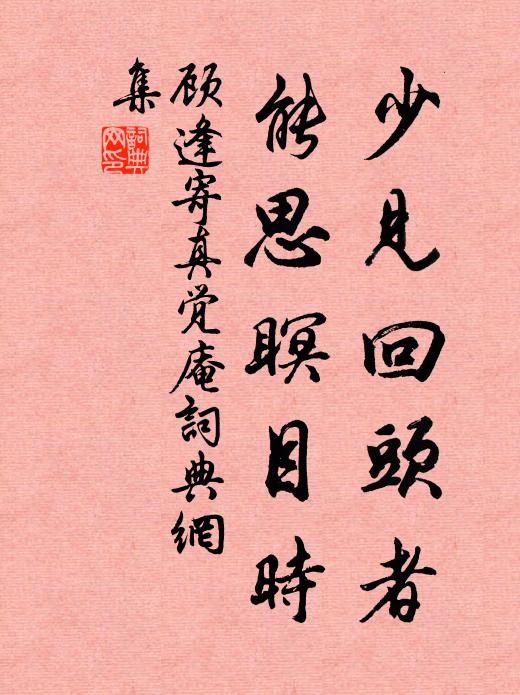 少見回頭者
能思瞑目時
顾逢寄真觉庵詞典網
集
詞典
网印